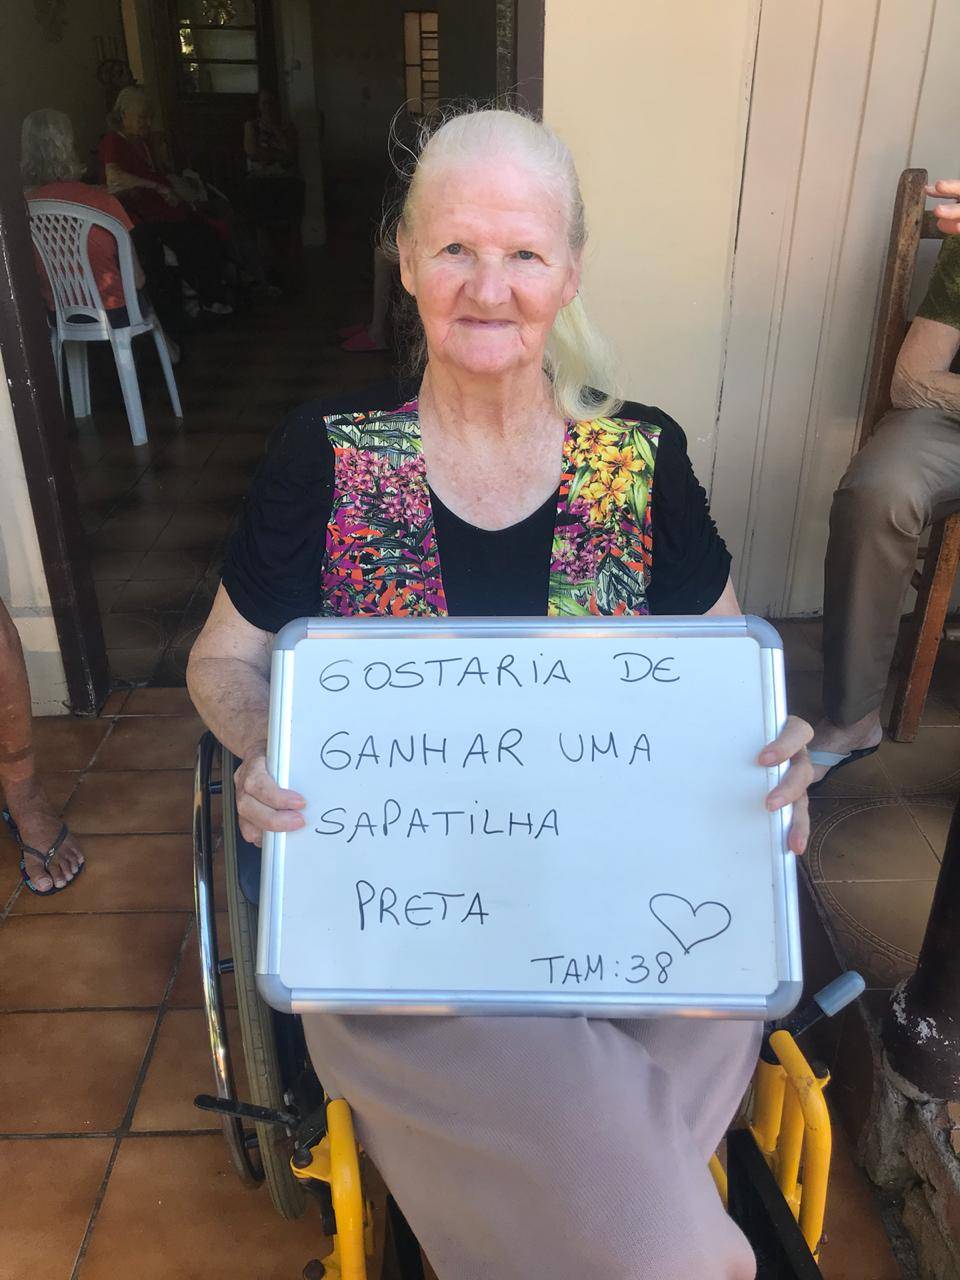 GOSTARiA DE
GANHAR UMA
SAPATiLHA
PRETA
TAM:38